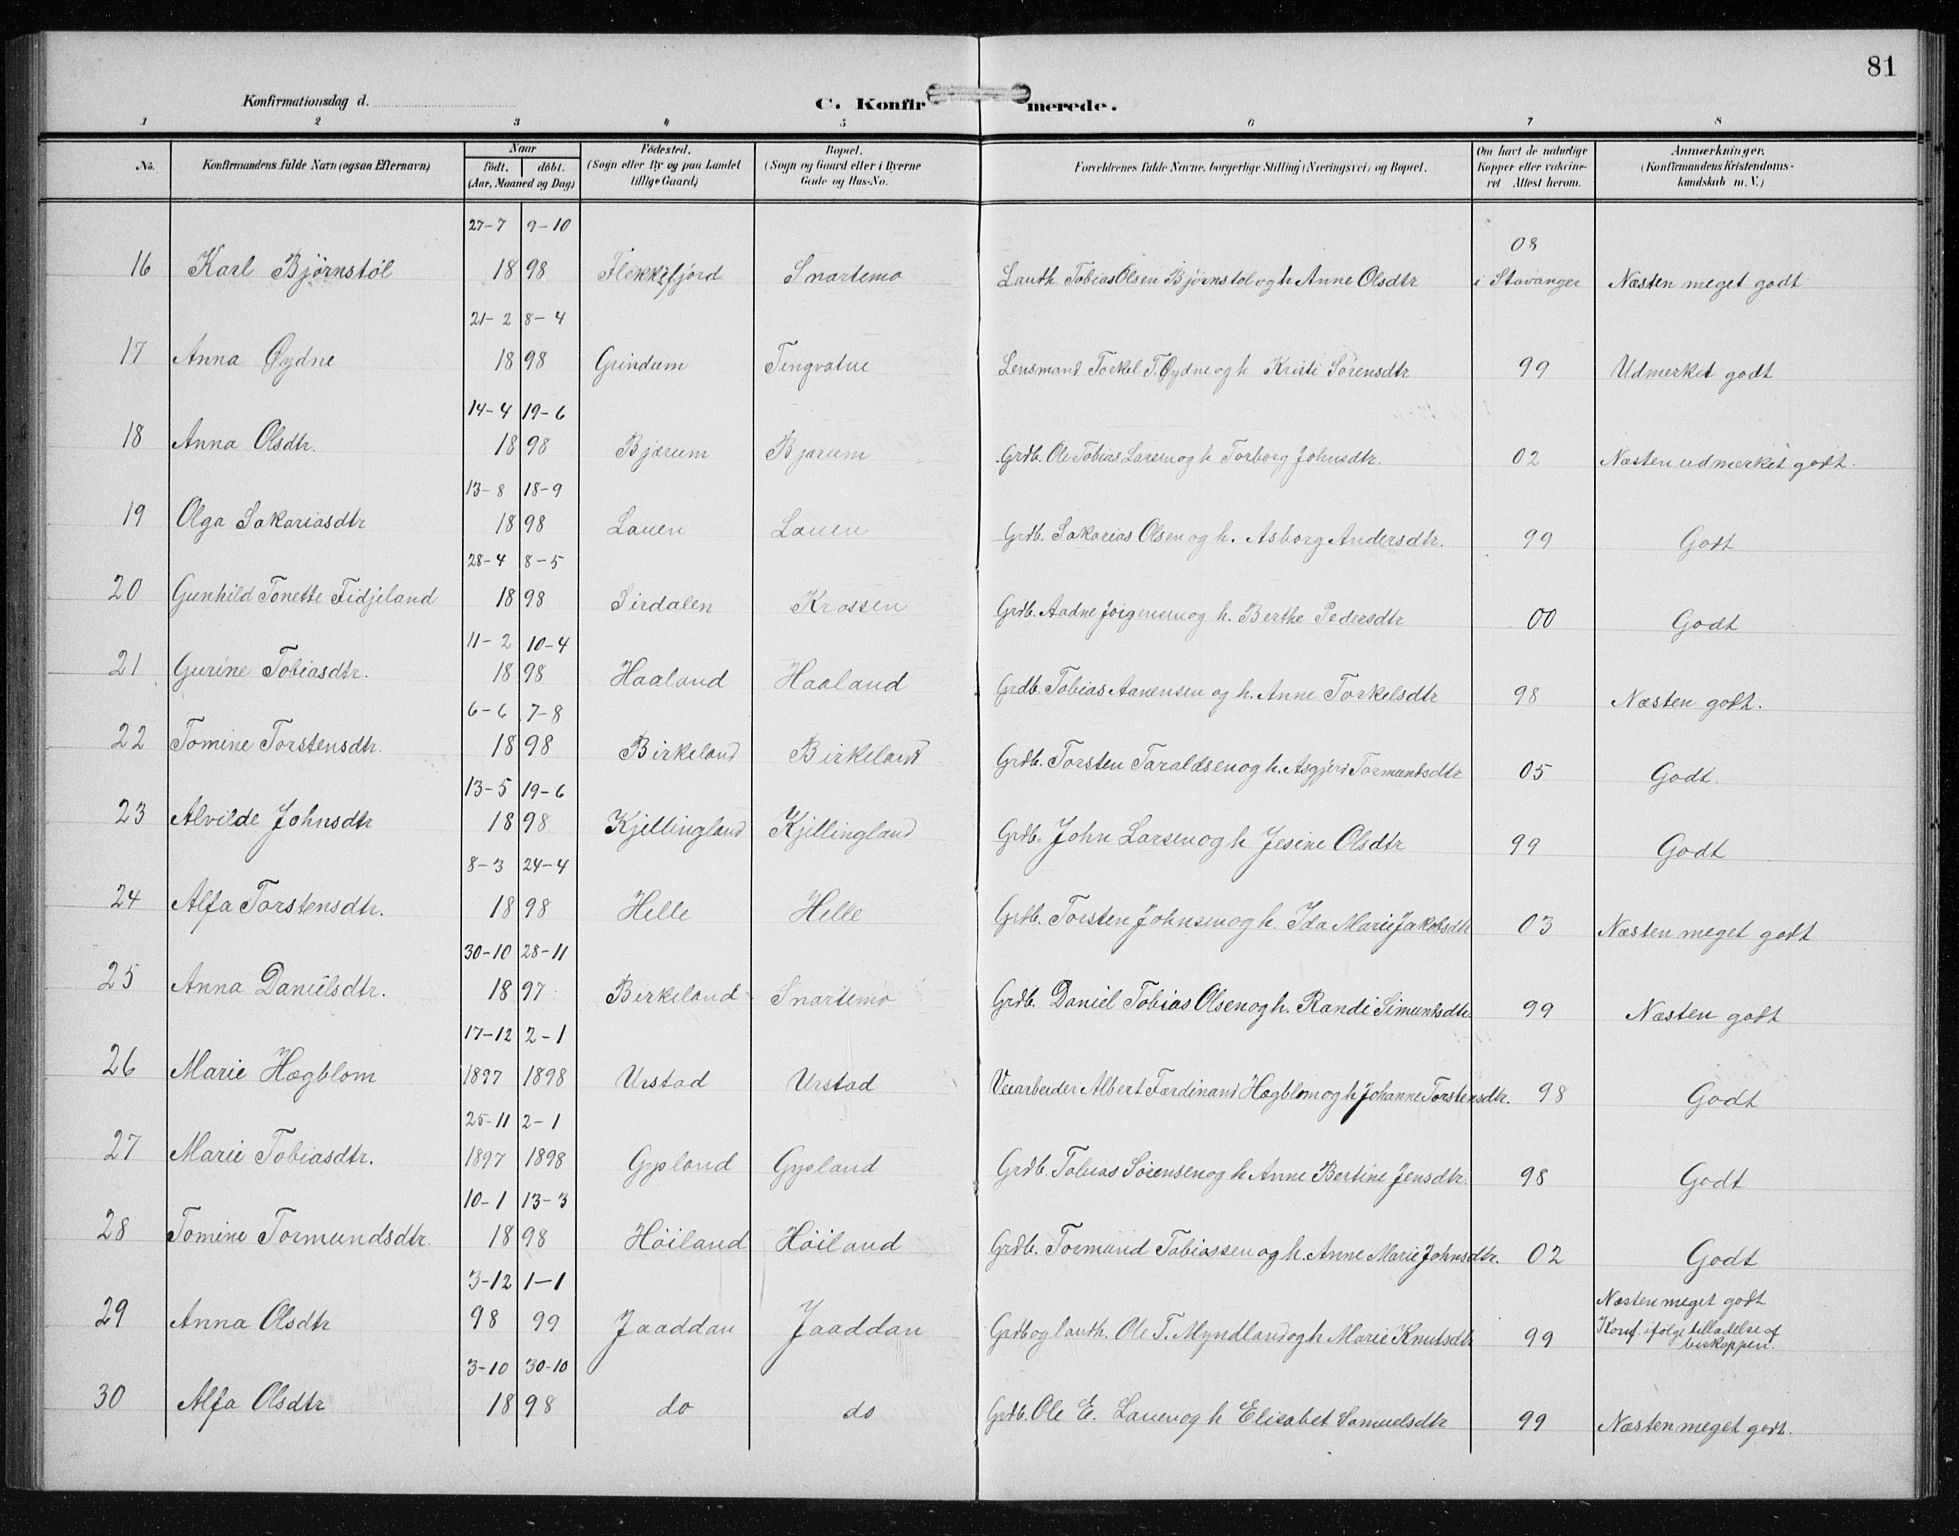 81
Konfirmationsdag d.
C. Konfirmerede.
1 2 3 4 5 6 7 8
No. Konfirmandens fulde Navn (ogsaa Efternavn) Naar født. døbt. (Aar, Maaned og Dag) Fødested. (Sogn eller By og paa Landet tillige Gaard) Bopæl. (Sogn og Gaard eller i Byerne Gade og Hus-No. Forældrenes fulde Navne, borgerlige Stilling (Næringsvei) og Bopæl. Om havt de naturlige Kopper eller vakcineret Attest herom. Anmærkninger. (Konfirmandens Kristendomskundskab m.V.)
27-7 9-10 08
16 Karl Bjørnstøl 1898 Flekkefjord Snartemo Lauth. Tobias Olsen Bjørnstøl og h Anne Olsdtr i Stavanger Næsten meget godt
21-2 8-4
17 Anna Øydne 1898 Grindum Tingvatne Lensmand Torkel T. Øydne og h Kristi Sørensdtr 99 Udmerket godt
14-4 19-6
18 Anna Olsdtr. 1898 Bjærum Bjærum Grdb. Ole Tobias Larsen og h Torborg Johnsdtr. 02 Næsten udmerket godt.
13-8 18-9
19 Olga Sakariasdtr 1898 Lauen Lauen Grdb. Sakarias Olsen og h. Asborg Andersdtr. 99 Godt
28-4 8-5
20 Gunhild Tonette Fidjeland 1898 Sirdalen Krossen Grdb. Aadne Jørgensen og h. Berthe Pedersdtr 00 Godt
11-2 10-4
21 Gurine Tobiasdtr. 1898 Haaland Haaland Grdb. Tobias Aanensen og h. Anne Torkelsdtr 98 Næsten godt.
6-6 7-8
22 Tomine Torstensdtr. 1898 Birkeland Birkeland Grdb. Torsten Taraldsen og h. Asgjerd Tormundsdtr 05 Godt.
13-5 19-6
23 Alvilde Johnsdtr 1898 Kjellingland Kjillingland Grdb. John Larsen og h Jesine Olsdtr 99 Godt
8-3 24-4
24 Alfa Torstensdtr. 1898 Helle Helle Grdb. Torsten Johnsen og h. Ida Marie Jakobsdtr 03 Næsten meget godt
30-10 28-11
25 Anna Danielsdtr. 1897 Birkeland Snartemo Grdb. Daniel Tobias Olsen og h. Randi Simuntsdtr 99 Næsten godt
17-12 2-1
26 Marie Hægblom 1897 1898 Urstad Urstad Veiarbeider Albert Ferdinand Hægblom og h Johanne Torstensdtr. 98 Godt
25-11 2-1
27 Marie Tobiasdtr. 1897 1898 Gypland Gypland Grdb. Tobias Sørensen og h Anne Bertine Jensdtr. 98 Godt
10-1 13-3
28 Tomine Tormundsdtr. 1898 Høiland Høiland Grdb. Tormund Tobiassen og h. Anne Marie Johnsdtr. 02 Godt
3-12 1-1 Næsten meget godt
29 Anna Olsdtr 98 99 Jaaddan Jaaddan Grdb og lauth. Ole T. Myndland og h Marie Knutsdtr 99 Konf. ifølge tilladelse af biskoppen.
3-10 30-10
30 Alfa Olsdtr 1898 do do Grdb. Ole E. Lauen og h Elisabet Samuelsdtr 99 Næsten meget godt.